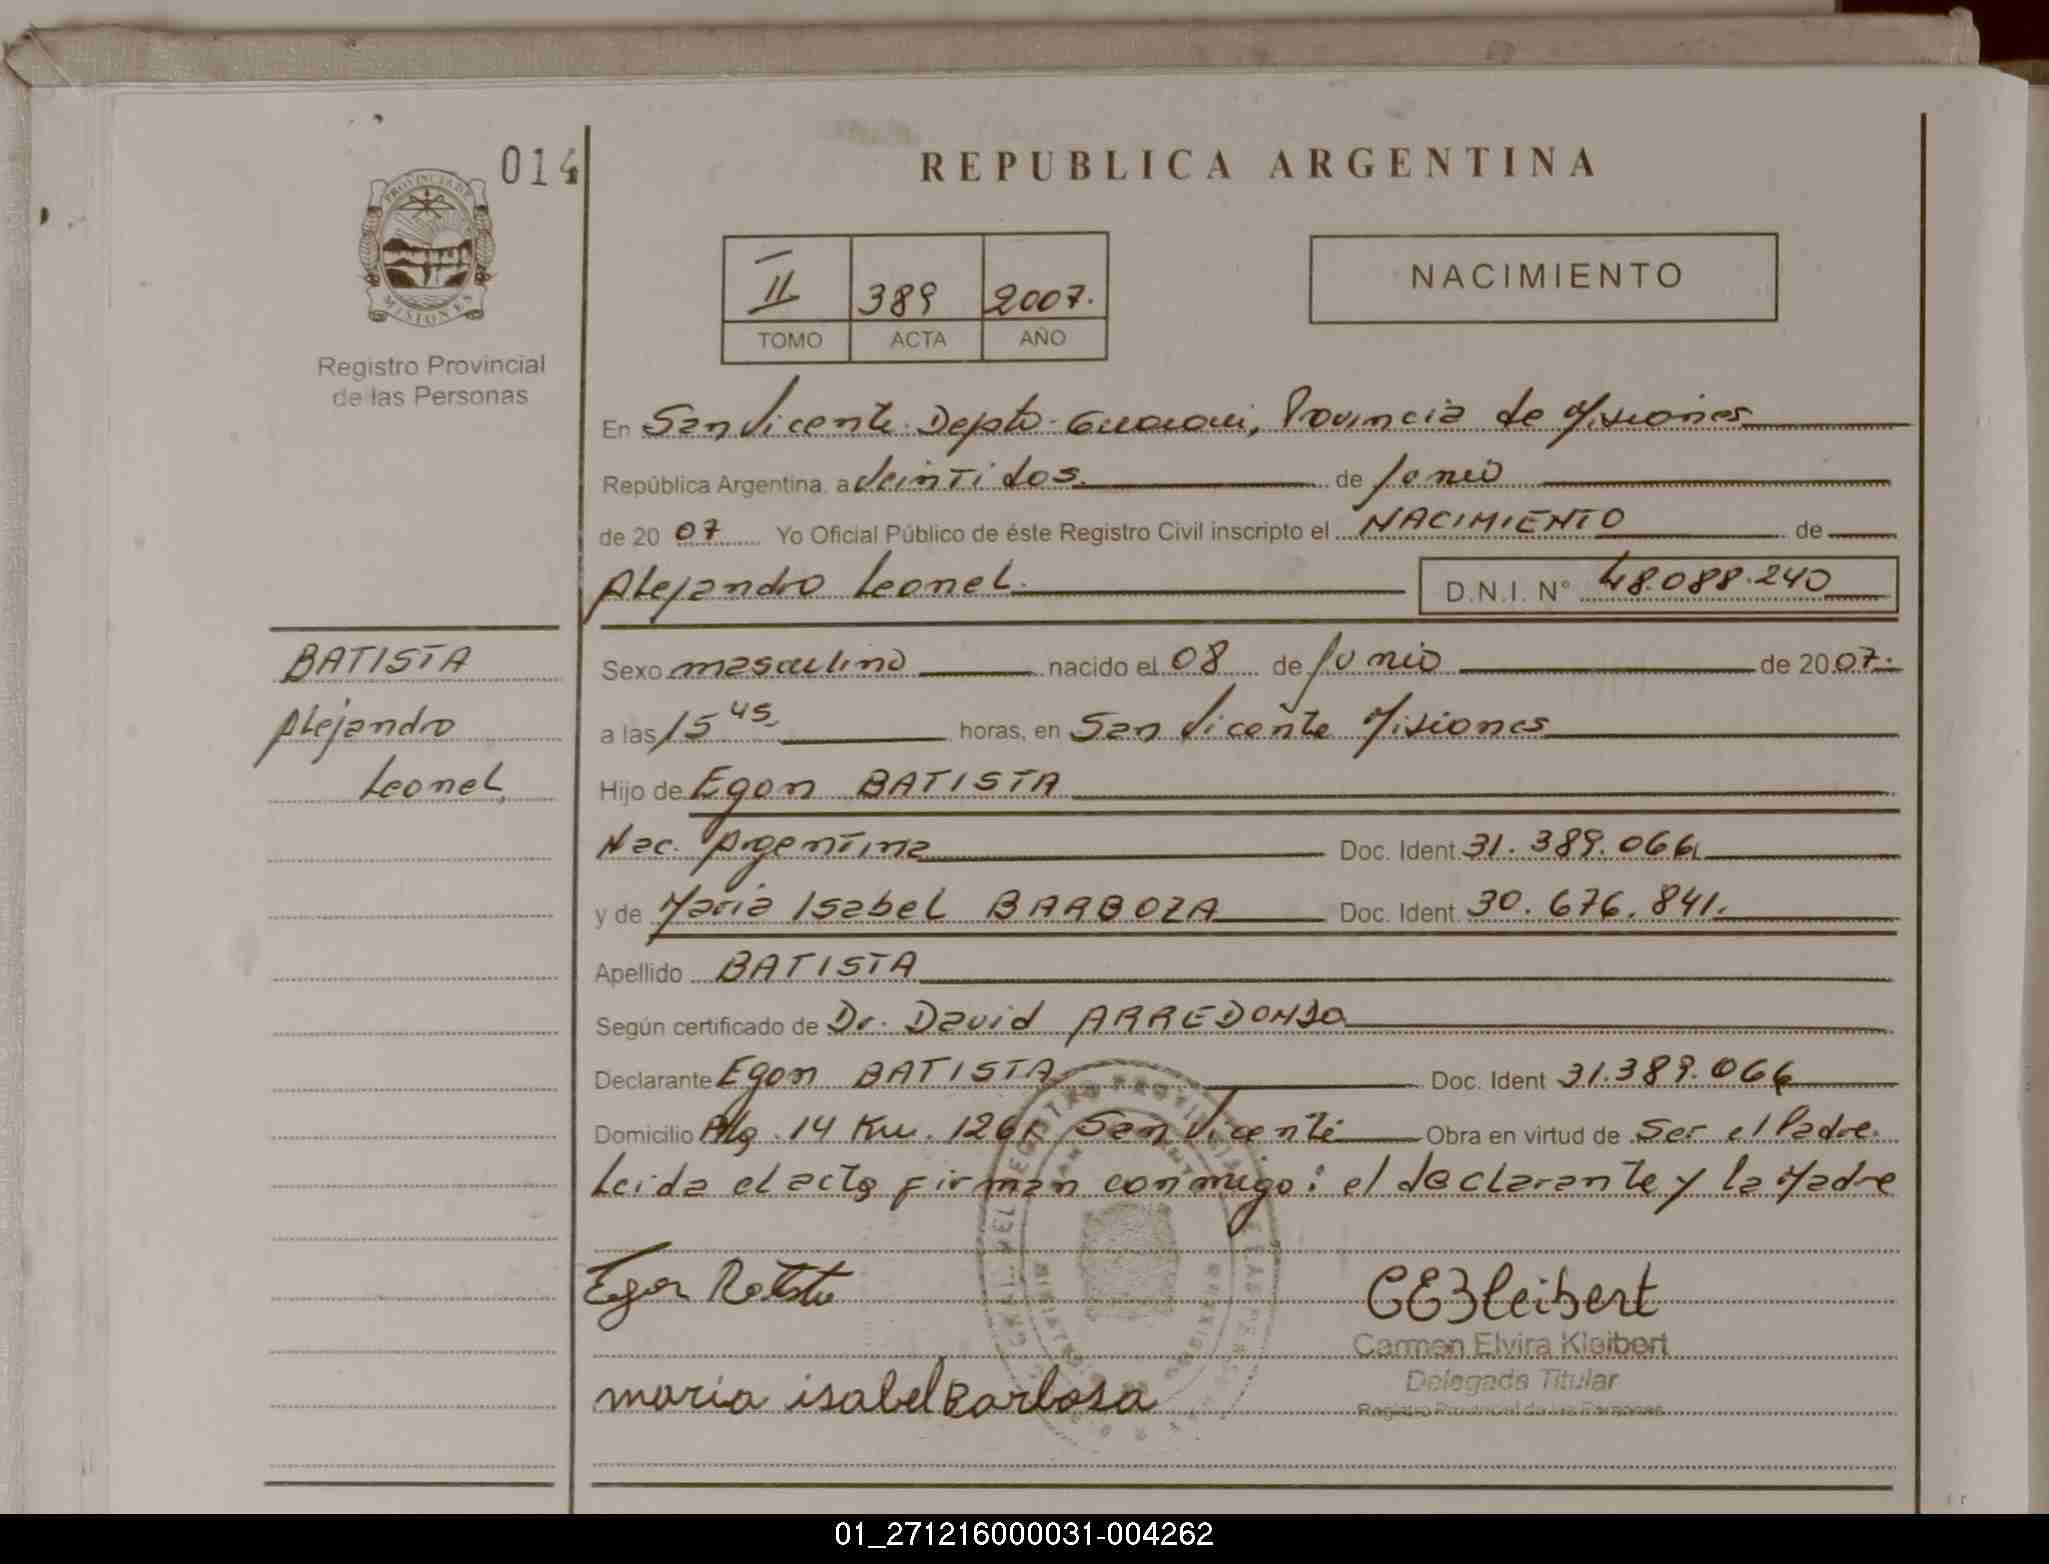 014
REPUBLICA ARGENTINA
PROVINCIA DE
MISIONES
Registro Provincial
de las Personas
II 389 2007.
TOMO ACTA AÑO
NACIMIENTO
En San Vicente Depto-Guarani, Provincia de Misiones
República Argentina, a Veintidos. de Junio
de 20 07 Yo Oficial Público de éste Registro Civil inscripto el NACIMIENTO de
Alejandro Leonel. D.N.I. N° 48.088.240
BATISTA
Alejandro
Leonel,
Sexo masculino nacido el 08 de Junio de 2007.
a las 15 45 horas, en San Vicente Misiones
Hijo de Egon BATISTA
Nac. Argentina Doc. Ident 31.389.066
y de Maria Isabel BARBOZA Doc. Ident 30.676.841.
Apellido BATISTA
Según certificado de Dr. David ARREDONDO
Declarante Egon BATISTA Doc. Ident 31.389.066
Domicilio 14 Km. San Vicente Obra en virtud de Ser el Padre.
Leida el acta firman conmigo: el declarante y la Madre
Egon Batista
CEKleibert
Carmen Elvira Kleibert
Delegada Titular
Registro Provincial de las Personas
maria isabel Barbosa
01_271216000031-004262